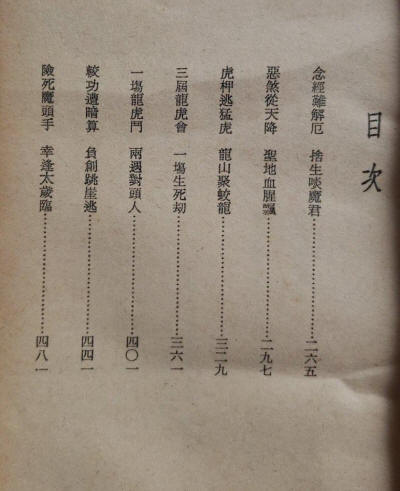 目次
念經難解厄 捨生啖魔君……二六五
惡煞從天降 聖地血腥飄……二九七
虎柙逃猛虎 龍山聚蛟龍……三二九
三屆龍虎會 一場生死劫……三六一
一塲龍虎鬥 兩遇對頭人……四〇一
較功遭暗算 負創跳崖逃……四四一
險死魔頭手 幸逢太歲臨……四八一